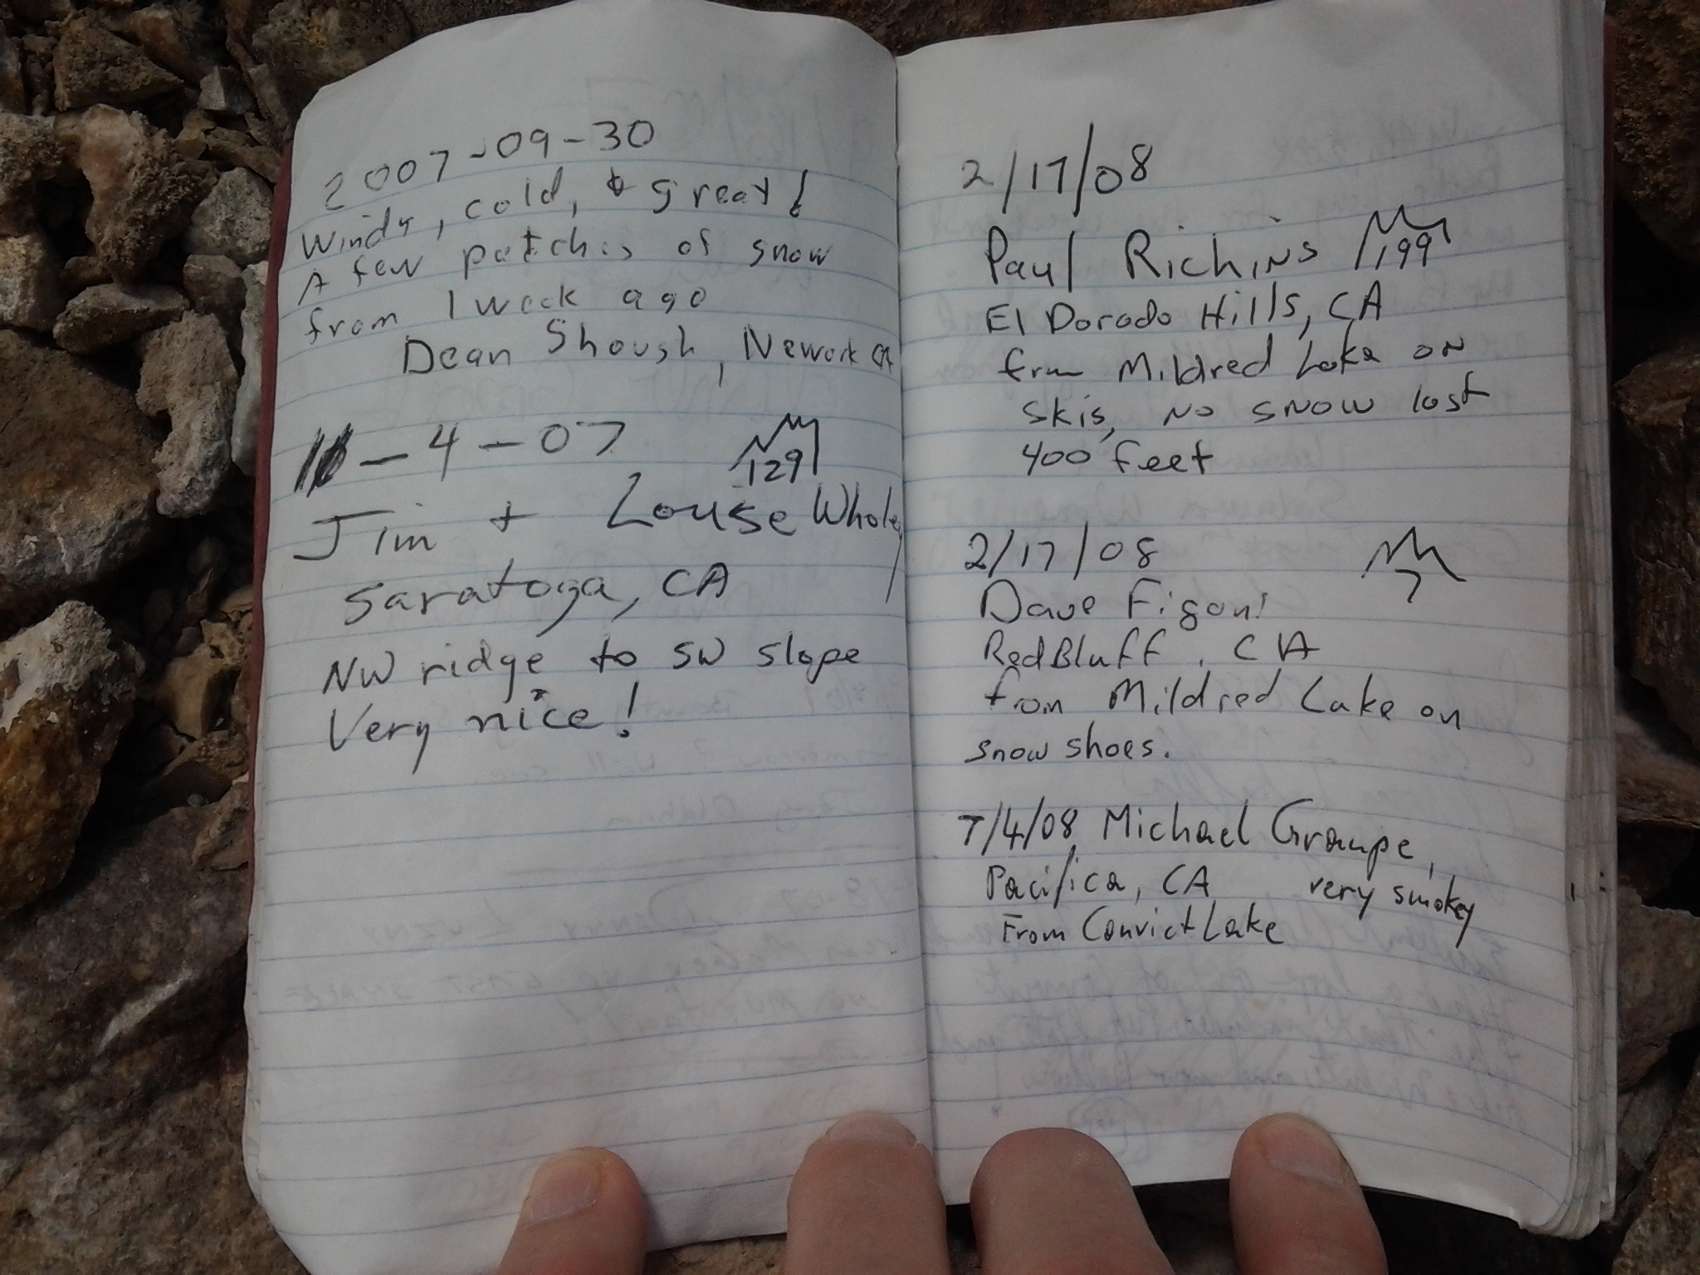 2007-09-30
Windy, cold, & great!
A few patches of snow
from 1 week ago
Dean Shoush, Newark CA
11-4-07
129
Jim + Louise Whole
Saratoga, CA
NW ridge to SW slope
Very nice!
2/17/08
Paul Richins 199
El Dorado Hills, CA
from Mildred Lake on
skis, no snow last
400 feet
2/17/08
7
Dave Figoni
Red Bluff, CA
from Mildred Lake on
snow shoes.
7/4/08 Michael Graupe,
Pacifica, CA very smokey
From Convict Lake